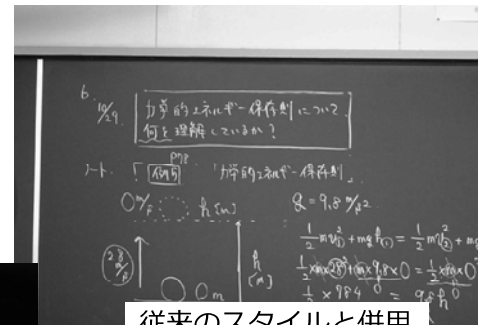 6.
10/29.
力学的エネルギー保存則について
何を理解しているか?
ノート. 例5 P78 「力学的エネルギー保存則」
0 m/s h [m] g = 9.8 m/s²
28 m/s
0 m
h [m]
1/2 mv₁² + mgh₁ = 1/2 mv₂² + mg
1/2 × m × 28² + m × 9.8 × 0 = 1/2 × m × 0
1/2 × 784 = 9.8 h
従来のスタイルと併用